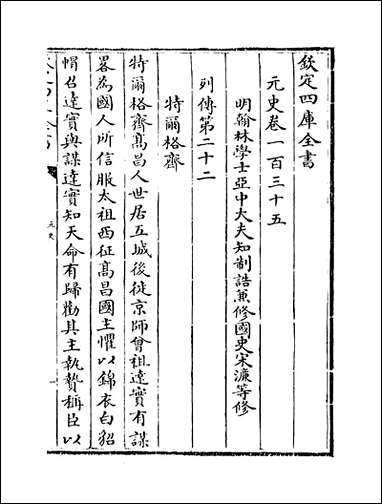 欽定四庫全書
元史卷一百三十五
明翰林學士亞中大夫知制誥兼修國史宋濂等修
列傳第二十二
特爾格齊
特爾格齊髙昌人世居五城後徙京師曾祖達實有謀
畧為國人所信服太祖西征髙昌國主懼以錦衣白貂
帽召達實與謀達實知天命有歸勸其主執贄稱臣以
元史